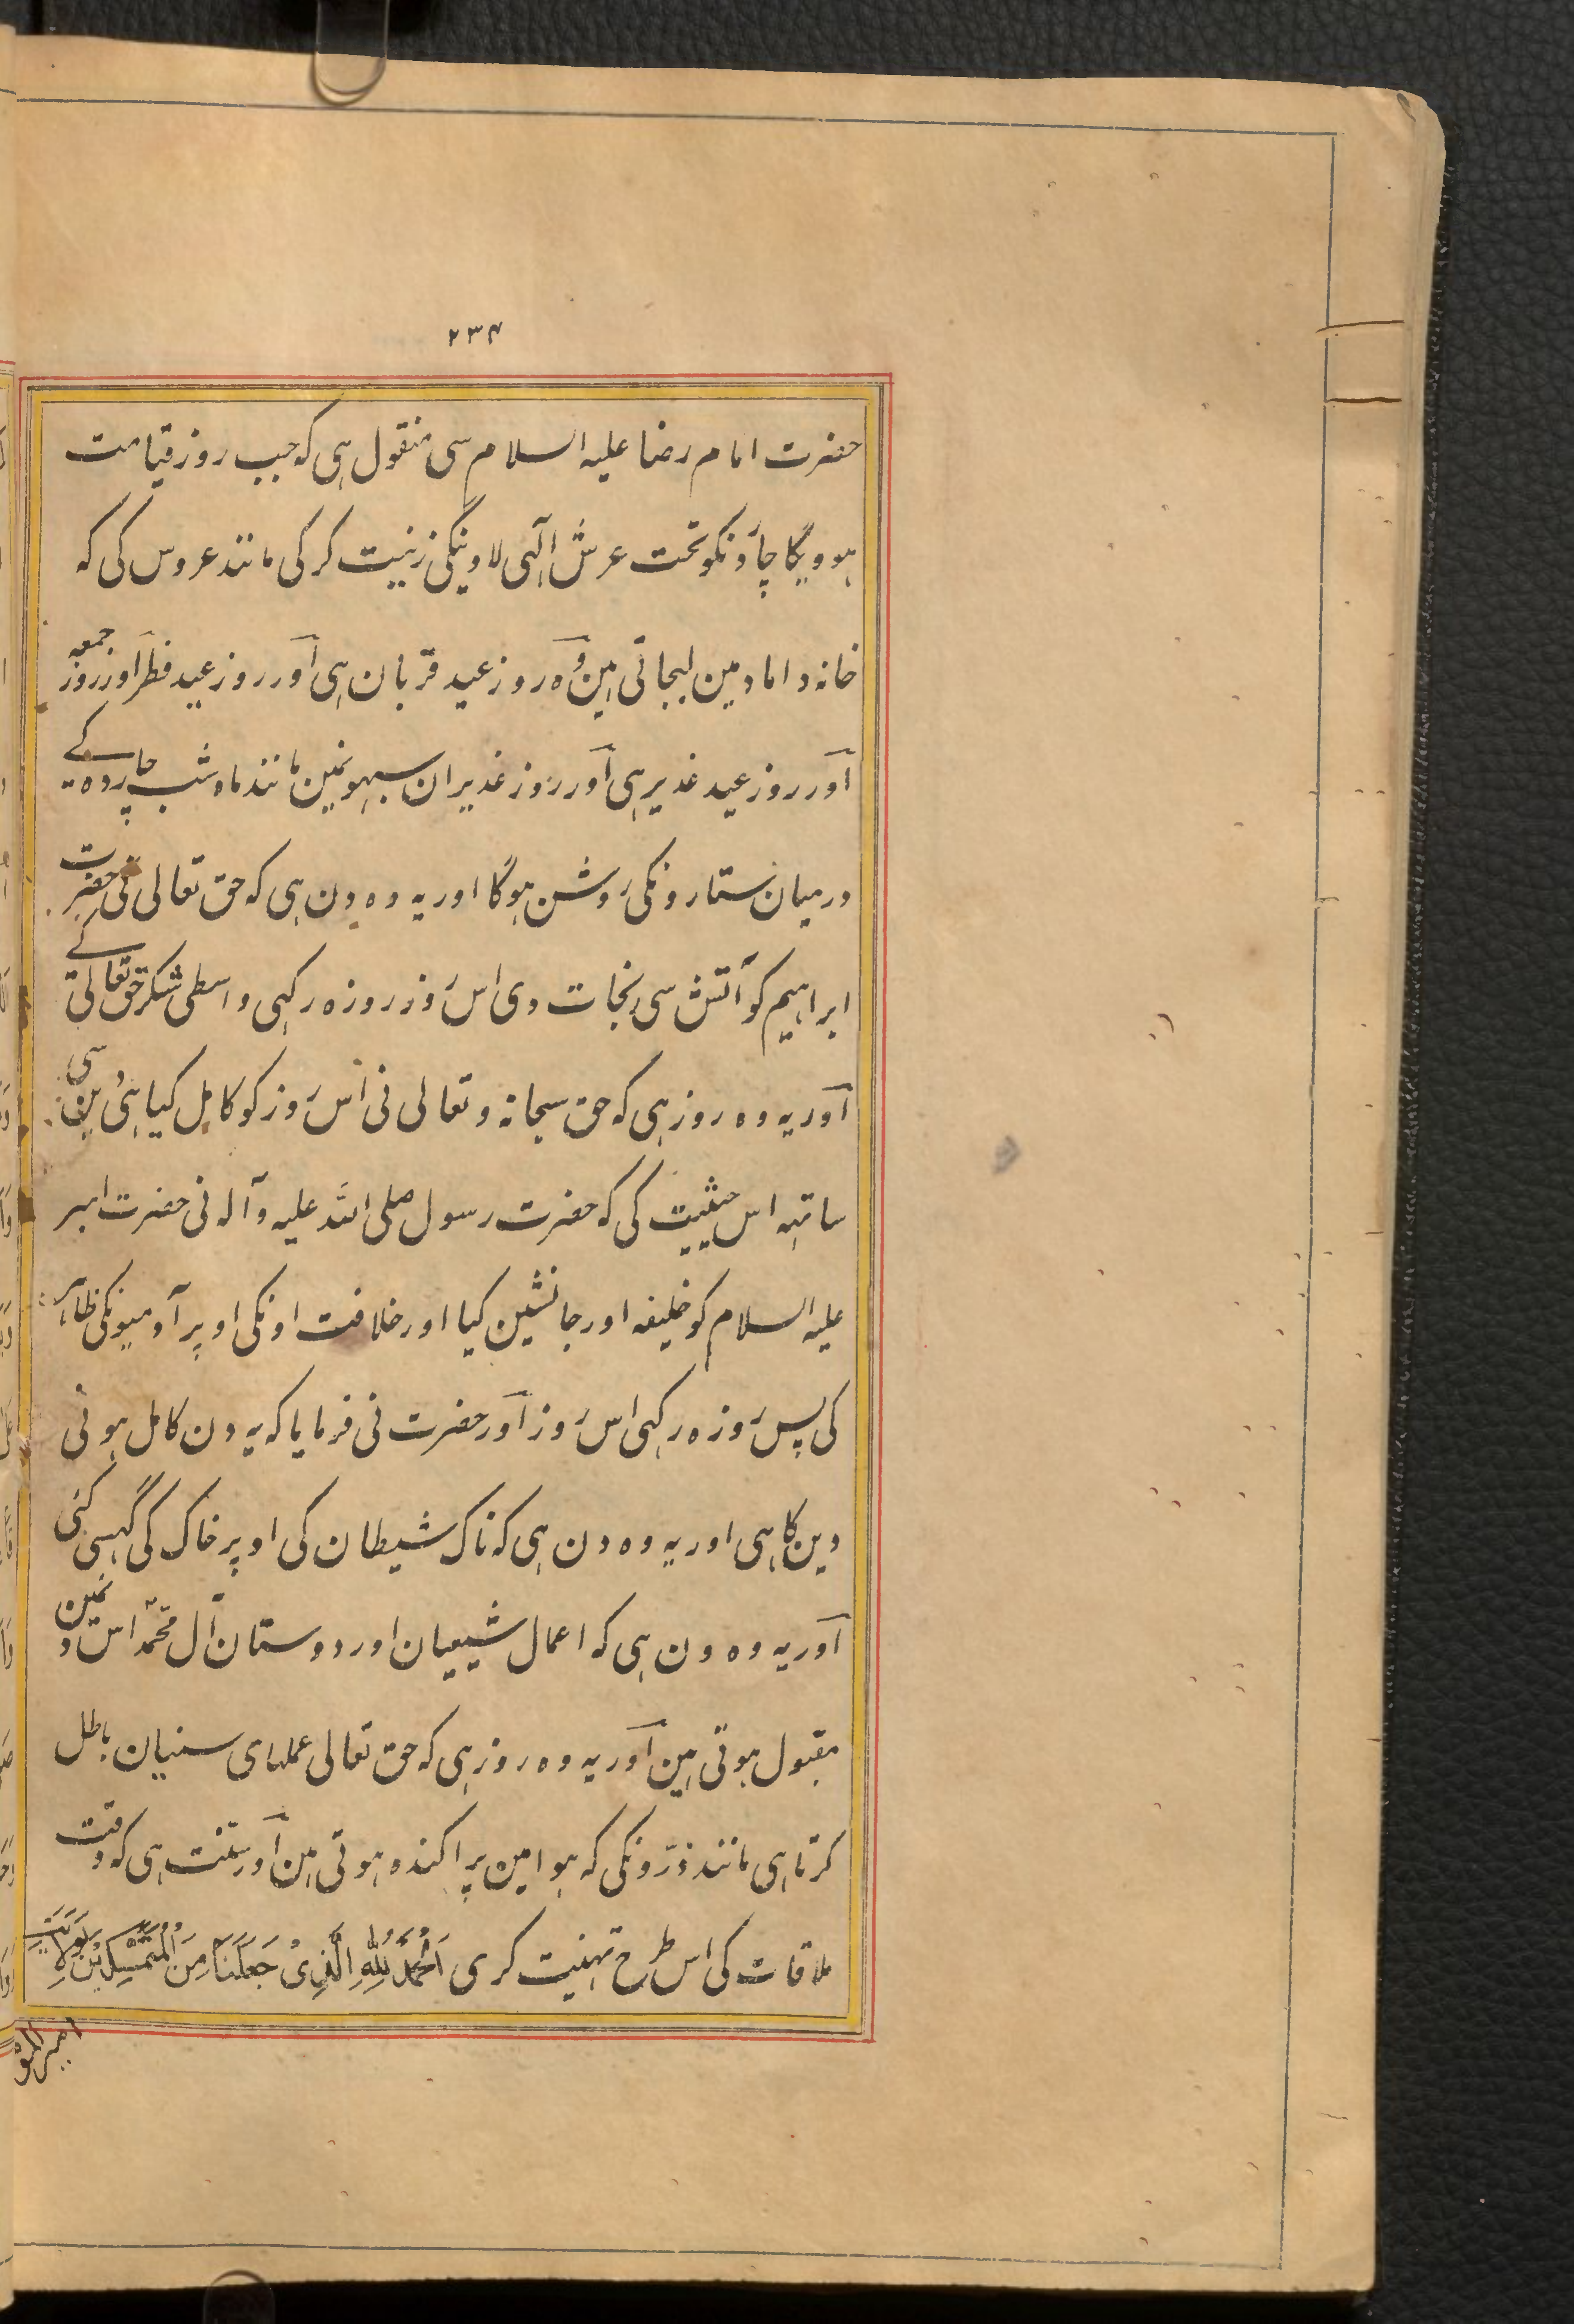 ۲۳۴
حضرت امام رضا علیہ السلام سی منقول ہی کہ جب روز قیامت
ہوویگا چاَر دنکو تحت عرش الٓہی لاوینگی زینت کر کی مانند عروس کی کہ
خانہ داماد مین لیجاتی ہین وُہ روز عید قربان ہی آور روز عید فطر آور روز جمعہ
آور روز عید غدیر ہی آور روز غدیر ان سبہونمین مانند ماہ شب چہاردہ کے
درمیان ستارونکی روشن ہوگا اور یہ وہ دن ہی کہ حق تعالی نی حضرت
ابراہیم کو آتش سی نجات دی اس روز روزہ رکہی واسطی شکر حق تعالی کے
آور یہ وہ روز ہی کہ حق سبحانہ و تعالی نی اس روز کو کامل کیا ہی دین سی
ساتہہ اس حیثیت کی کہ حضرت رسول صلی اللہ علیہ وآلہ نی حضرت امیر
علیہ السلام کو خلیفہ اور جانشین کیا اور خلافت اونکی اوپر آدمیونکی ظاہر
کی پس روزہ رکہی اس روز آور حضرت نی فرمایا کہ یہ دن کامل ہونی
دین کا ہی اور یہ وہ دن ہی کہ ناک شیطان کی اوپر خاک کی گہسی گئی
آور یہ وہ دن ہی کہ اعمال شیعیان اور دوستان آل محمّد اس دنمین
مقبول ہوتی ہین آور یہ وہ روز ہی کہ حق تعالی عملہای سنیان باطل
کرتا ہی مانند ذرّونکی کہ ہوا مین پراکندہ ہوتی ہین آور سنّت ہی کہ وقت
ملاقات کی اس طرح تہنیت کری اَلْحَمْدُ لِلّٰہِ الَّذِیْ جَعَلَنَا مِنَ الْمُتَمَسِّکِیْنَ بِوِلَایَتِ
امیر المؤ